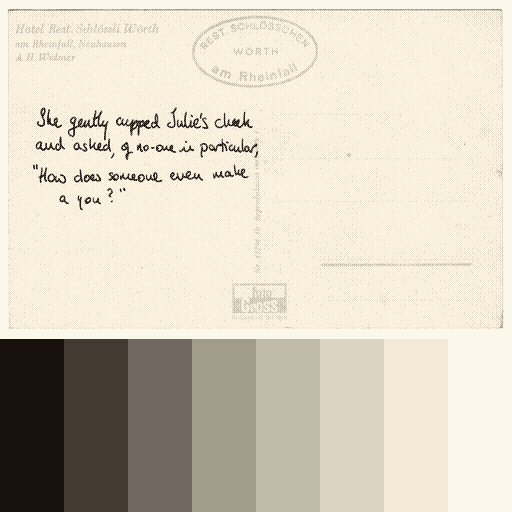 Hotel Rest. Schlössli Wörth
am Rheinfall, Neuhausen
A.H. Widmer
REST. SCHLÖSSCHEN
WÖRTH
am Rheinfall
She gently cupped Julie's cheek
and asked, of no-one in particular,
"How does someone even make
a you?"
foto
GROSS